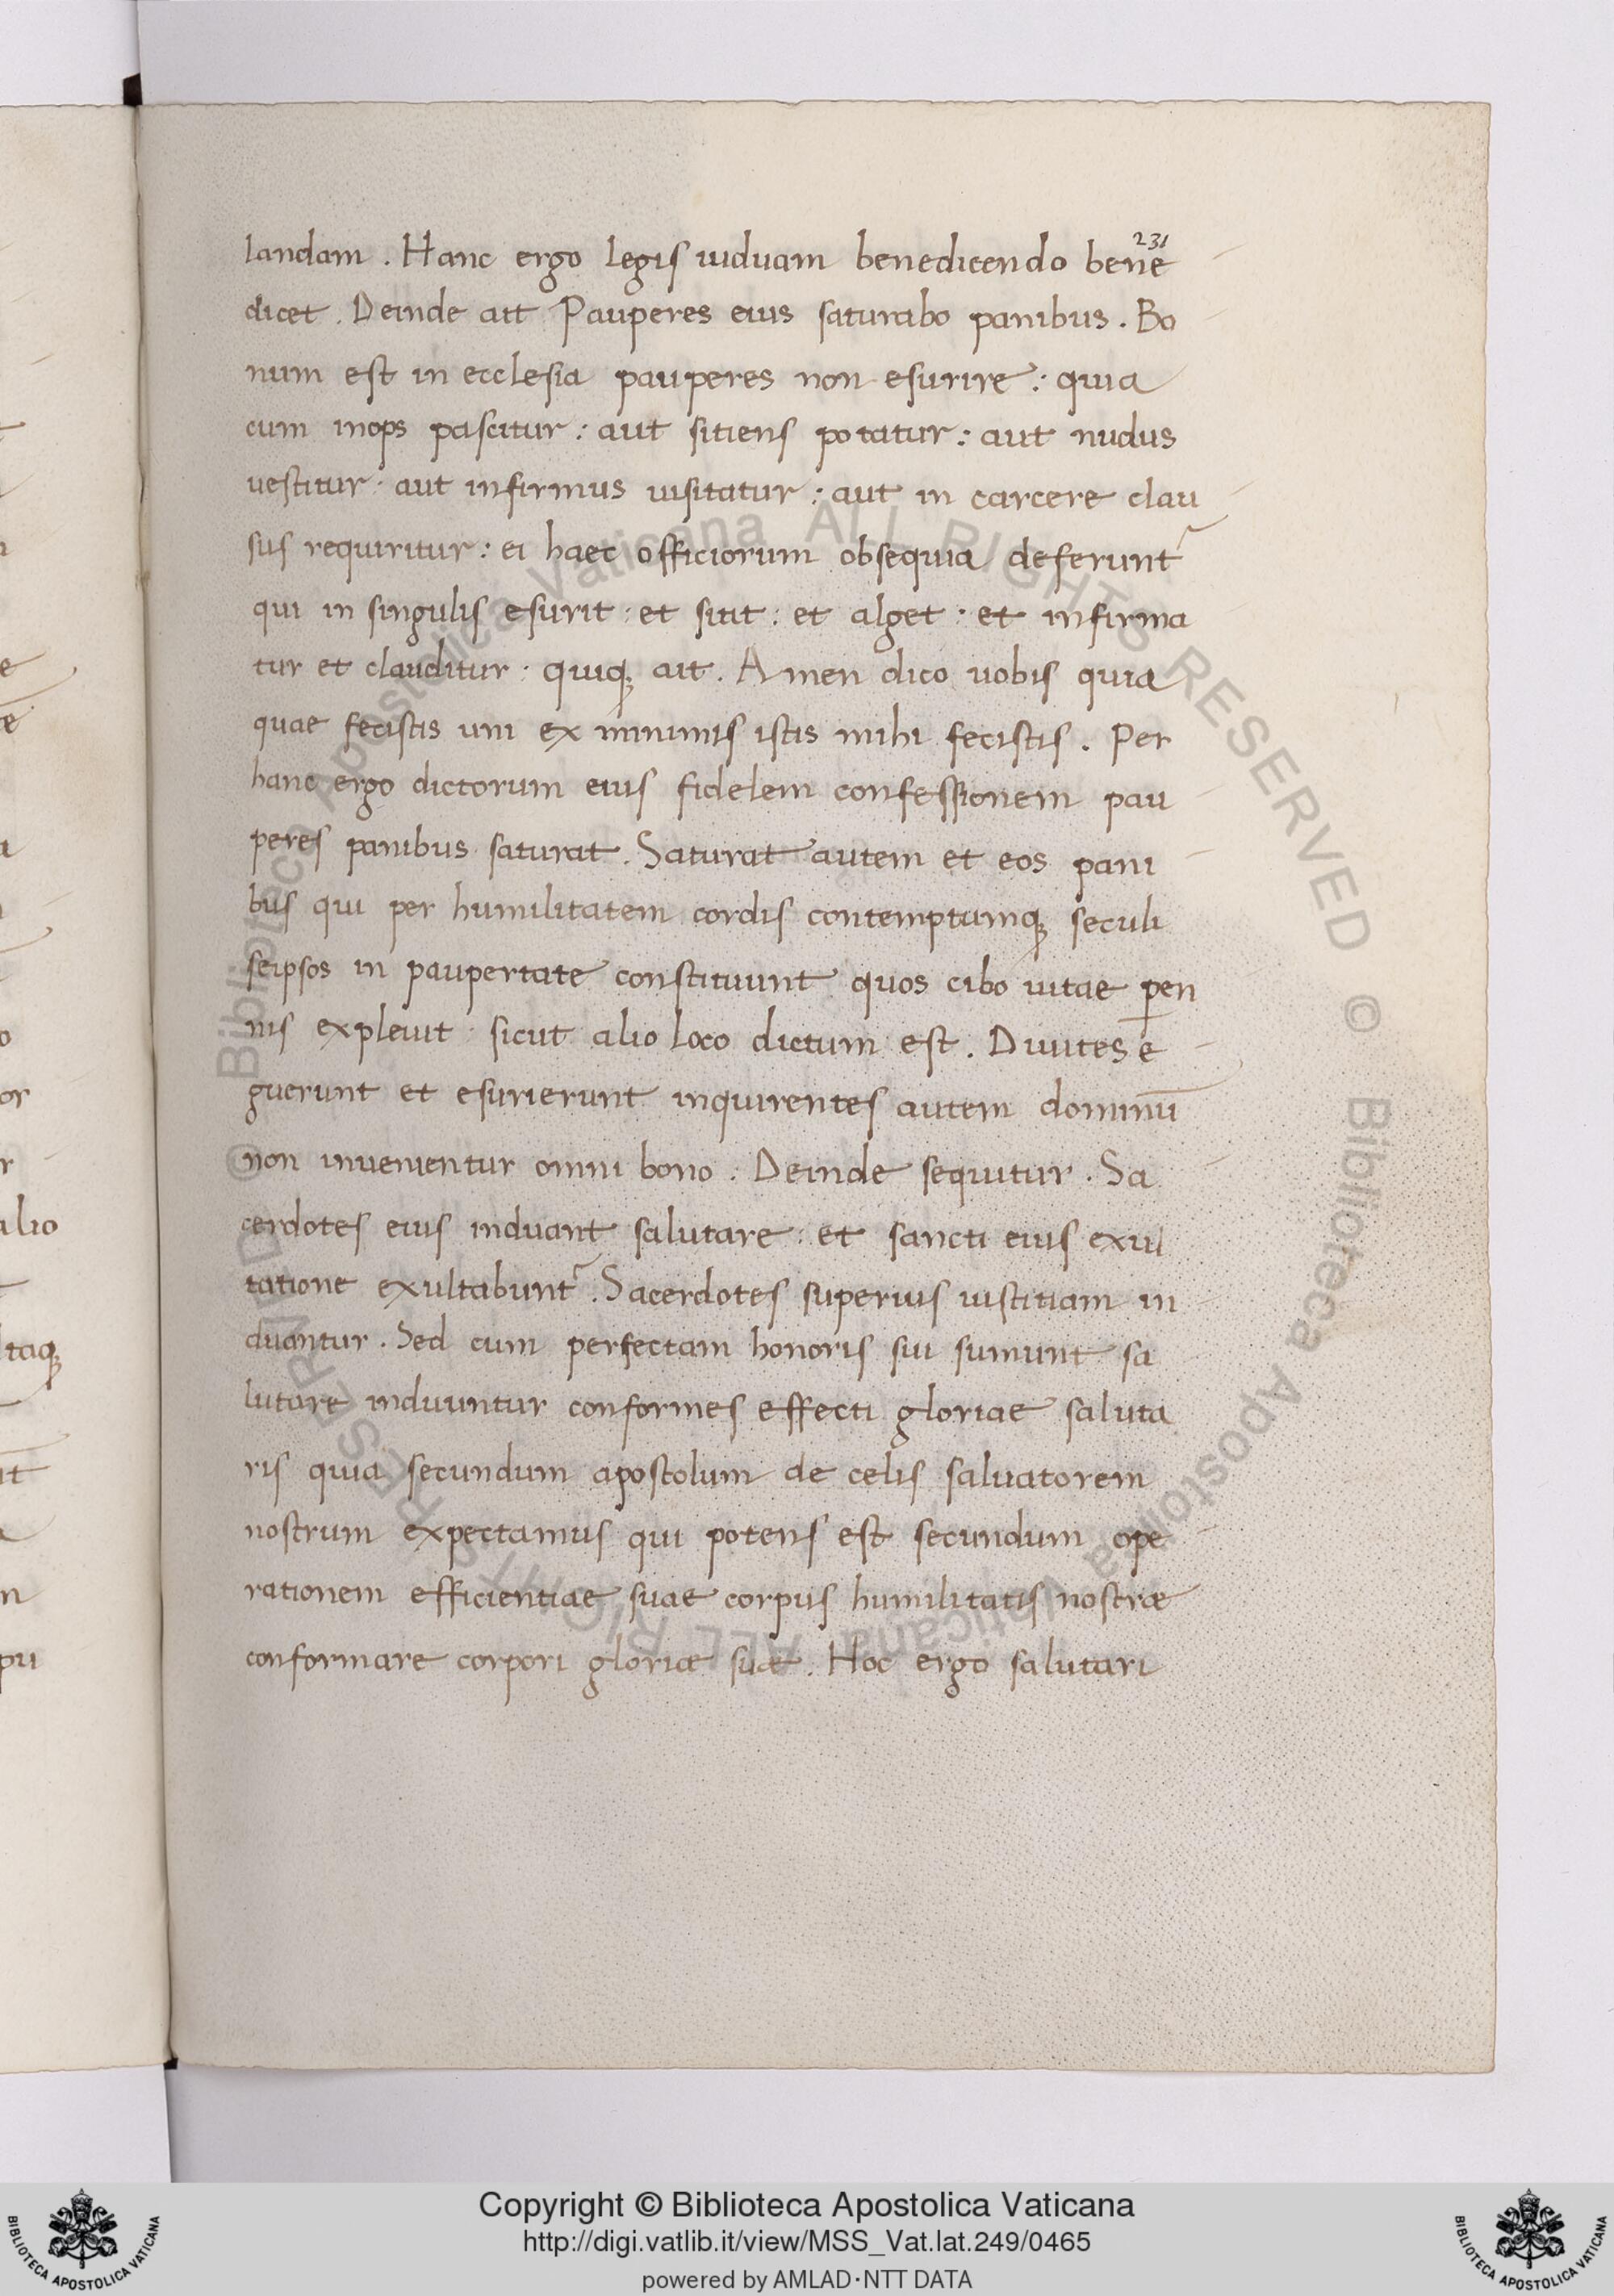 231
landam . Hanc ergo legis uiduam benedicendo bene
dicet . Deinde ait Pauperes eius saturabo panibus . Bo
num est in ecclesia pauperes non esurire : quia
cum inops pascitur : aut sitiens potatur : aut nudus
uestitur : aut infirmus uisitatur : aut in carcere clau
sus requiritur : ei haec officiorum obsequia deferunt᷑
qui in singulis esurit : et sitit : et alget : et infirma
tur et clauditur : quiq; ait . Amen dico uobis quia
quae fecistis uni ex minimis istis mihi fecistis . Per
hanc ergo dictorum eius fidelem confessionem pau
peres panibus saturat . Saturat autem et eos pani
bus qui per humilitatem cordis contemptumq; seculi
seipsos in paupertate constituunt quos cibo uitae ꝑen
nis expleuit sicut alio loco dictum est . Diuites e
guerunt et esurierunt inquirentes autem dominū
non inuenientur omni bono . Deinde sequitur . Sa
cerdotes eius induant salutare : et sancti eius exul
tatione exultabunt᷑ . Sacerdotes superius iustitiam in
duantur . Sed cum perfectam honoris sui sumunt sa
lutare induuntur conformes effecti gloriae saluta
ris quia secundum apostolum de celis saluatorem
nostrum expectamus qui potens est secundum ope
rationem efficientiae suae corpus humilitatis nostræ
conformare corpori gloriæ suæ . Hoc ergo salutari
Copyright © Biblioteca Apostolica Vaticana
http://digi.vatlib.it/view/MSS_Vat.lat.249/0465
powered by AMLAD·NTT DATA
BIBLIOTECA APOSTOLICA VATICANA
BIBLIOTECA APOSTOLICA VATICANA